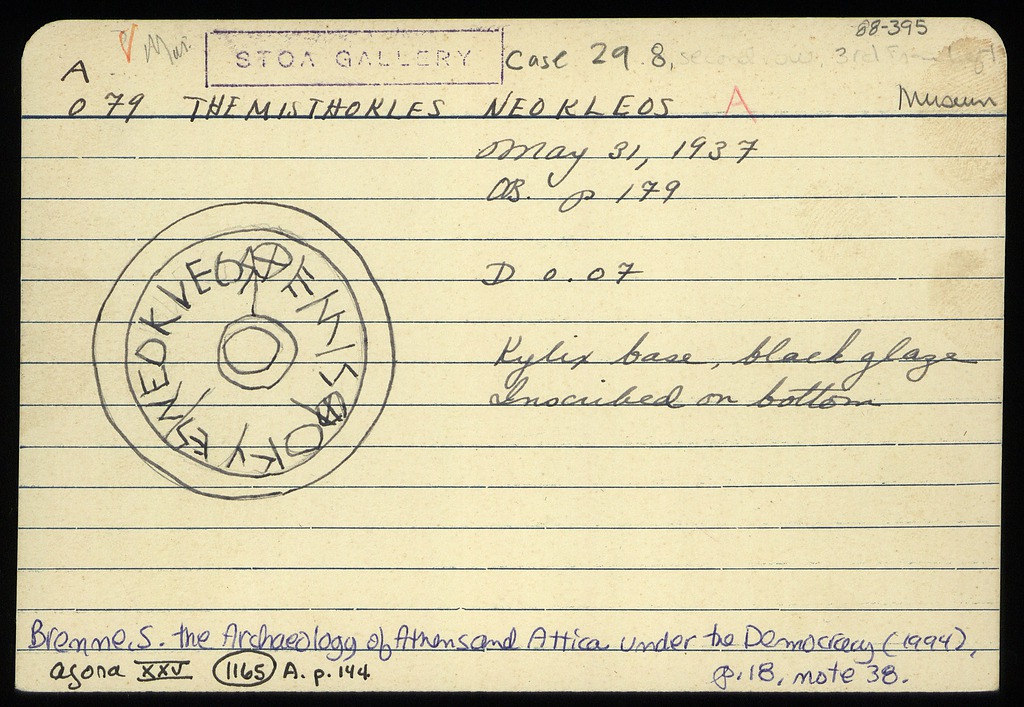 88-395
Mus. STOA GALLERY Case 29.8, second row, 3rd from left
A
O 79 THEMISTHOKLES NEOKLEOS A Museum
May 31, 1937
OB. p 179
D 0.07
Kylix base, black glaze
Inscribed on bottom
Brenne, S. the Archaeology of Athens and Attica under the Democracy (1994),
p.18, note 38.
agora XXV 1165 A. p. 144